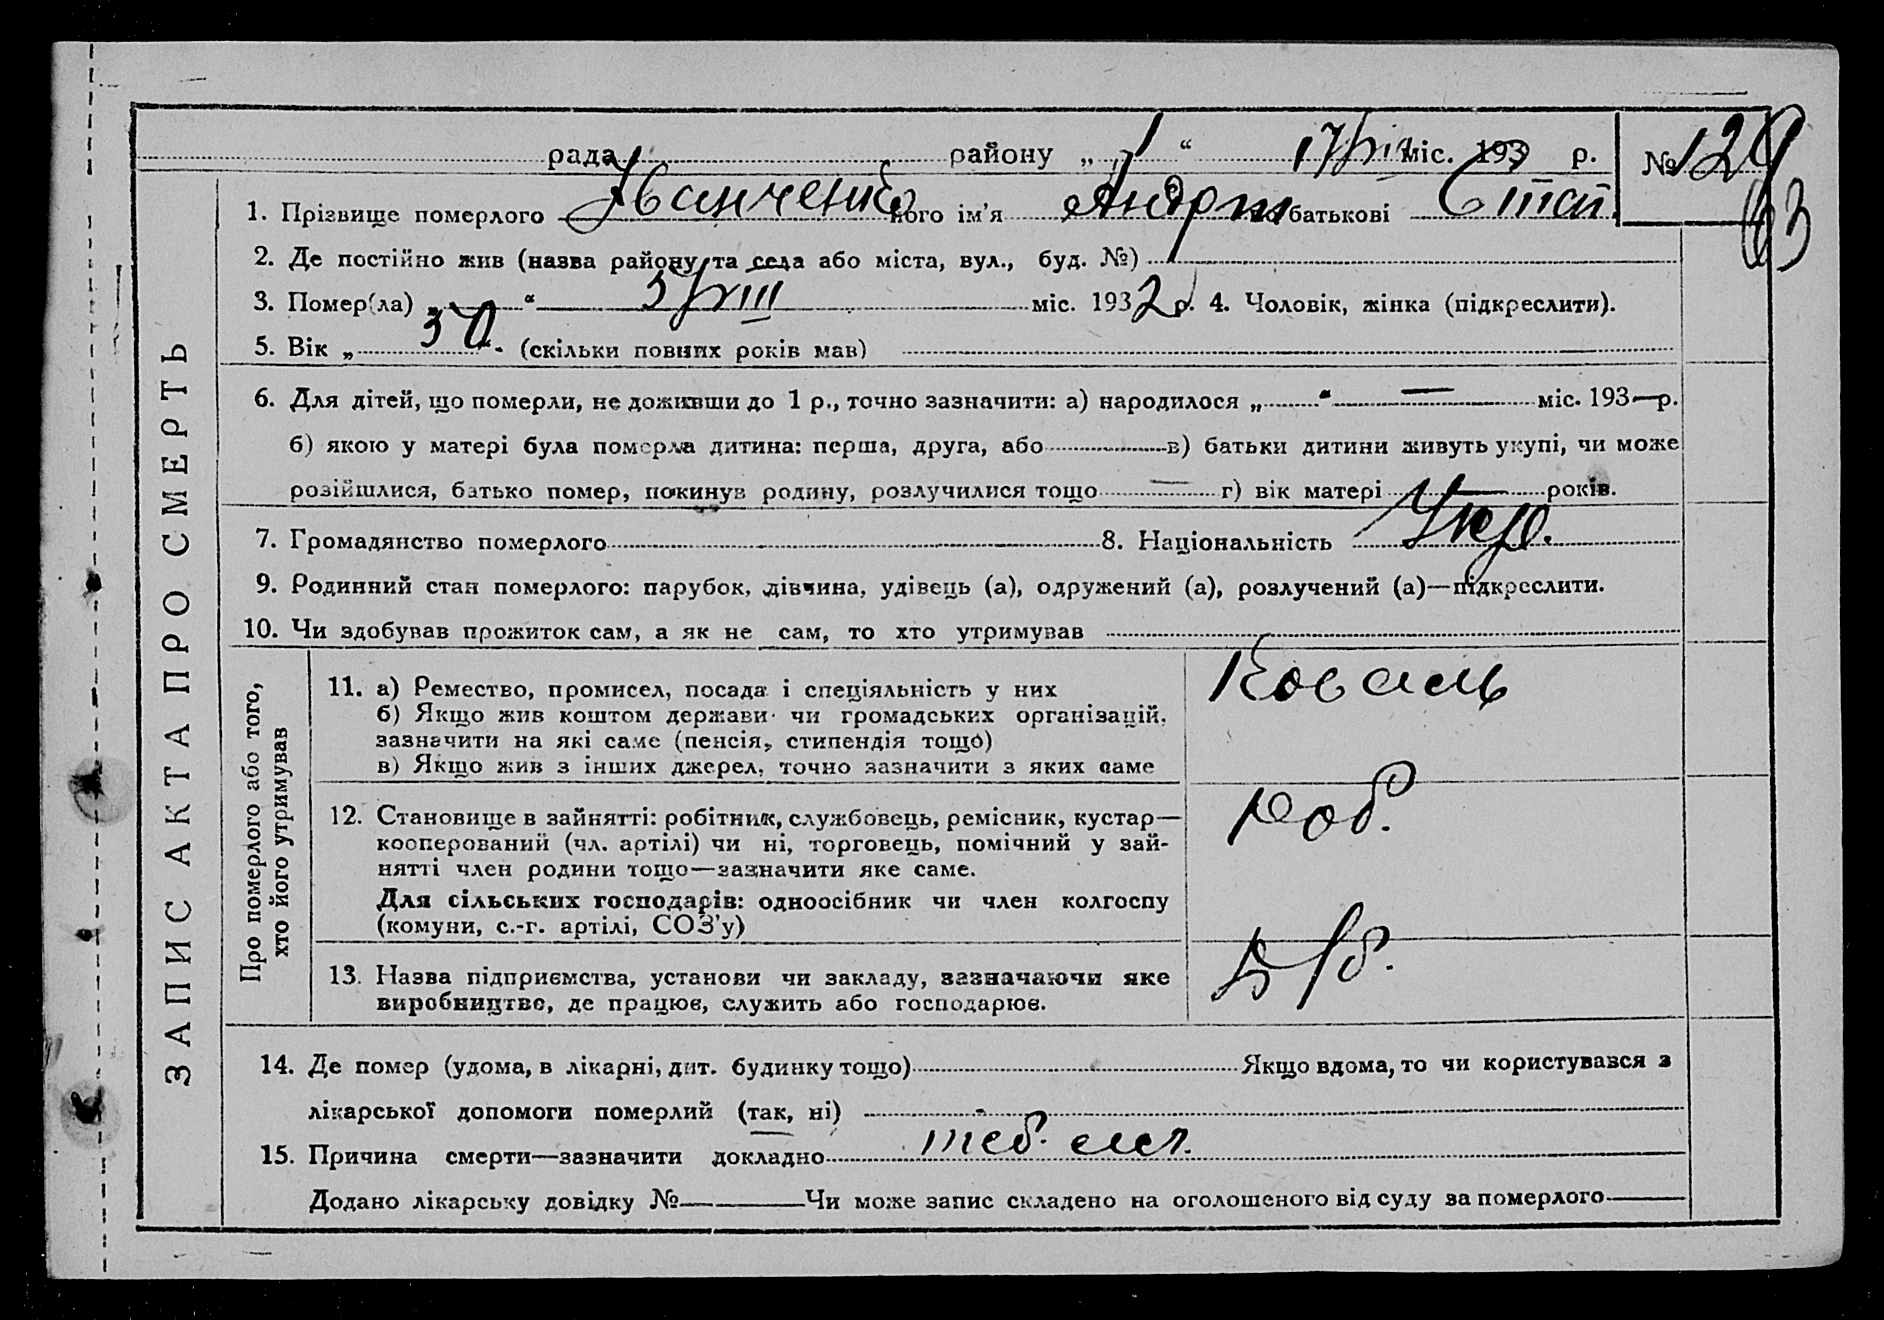 рада района „ 1 “ 17/VIII міс. 193 р. № 129
63
1. Прізвище померлого Іванченко його ім'я Андрій по батькові Степ.
2. Де постійно жив (назва району та села або міста, вул., буд. №)
3. Помер(ла) „ “ 5/VIII міс. 1932 р. 4. Чоловік, жінка (підкреслити).
5. Вік „ 30 “. (скільки повних років мав)
6. Для дітей, що померли, не доживши до 1 р., точно зазначити: а) народилося „ “ — міс. 193—р.
б) якою у матері була померла дитина: перша, друга, або в) батьки дитини живуть укупі, чи може
розійшлися, батько помер, покинув родину, розлучилися тощо — г) вік матері — років.
7. Громадянство померлого 8. Національність Укр.
9. Родинний стан померлого: парубок, дівчина, удівець (а), одружений (а), розлучений (а)—підкреслити.
10. Чи здобував прожиток сам, а як не сам, то хто утримував
11. а) Ремество, промисел, посада і спеціяльність у них
б) Якщо жив коштом держави чи громадських організацій,
зазначити на які саме (пенсія, стипендія тощо)
в) Якщо жив з інших джерел, точно зазначити з яких саме
Коваль
12. Становище в зайнятті: робітник, службовець, ремісник, кустар—
кооперований (чл. артілі) чи ні, торговець, помічний у зай-
нятті член родини тощо—зазначити яке саме.
Для сільських господарів: одноосібник чи член колгоспу
(комуни, с.-г. артілі, СОЗ'у)
Роб.
13. Назва підприємства, установи чи закладу, зазначаючи яке
виробництво, де працює, служить або господарює.
14. Де помер (удома, в лікарні, дит. будинку тощо) Якщо вдома, то чи користувався з
лікарської допомоги померлий (так, ні)
15. Причина смерти—зазначити докладно
Додано лікарську довідку №— —Чи може запис складено на оголошеного від суду за померлого—
ЗАПИС АКТА ПРО СМЕРТЬ
Про померлого або того,
хто його утримував